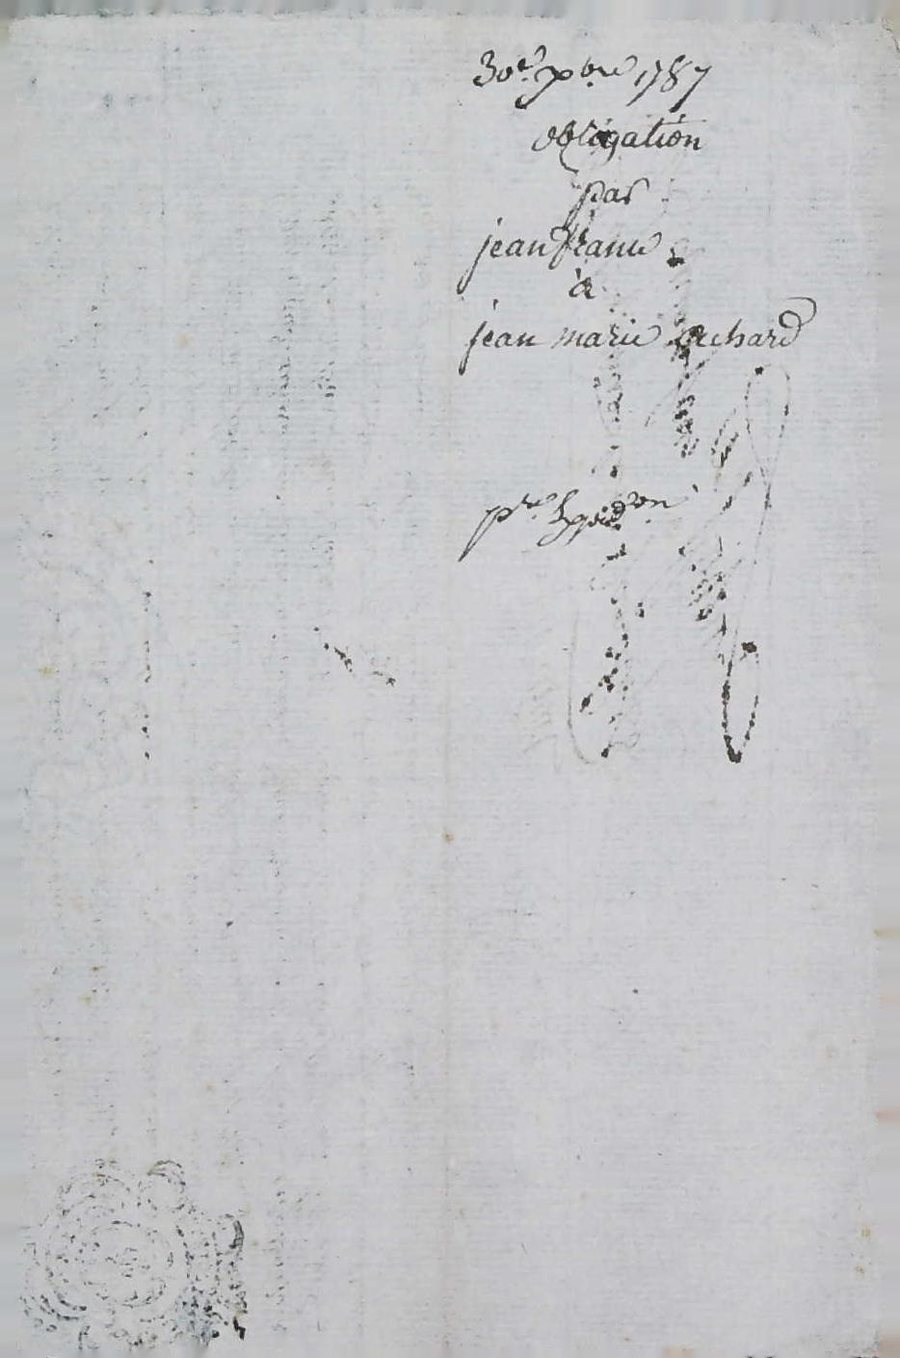 30e. xbre 1787
obligation
par
jean franc
à
jean marie achard
pre Expedon